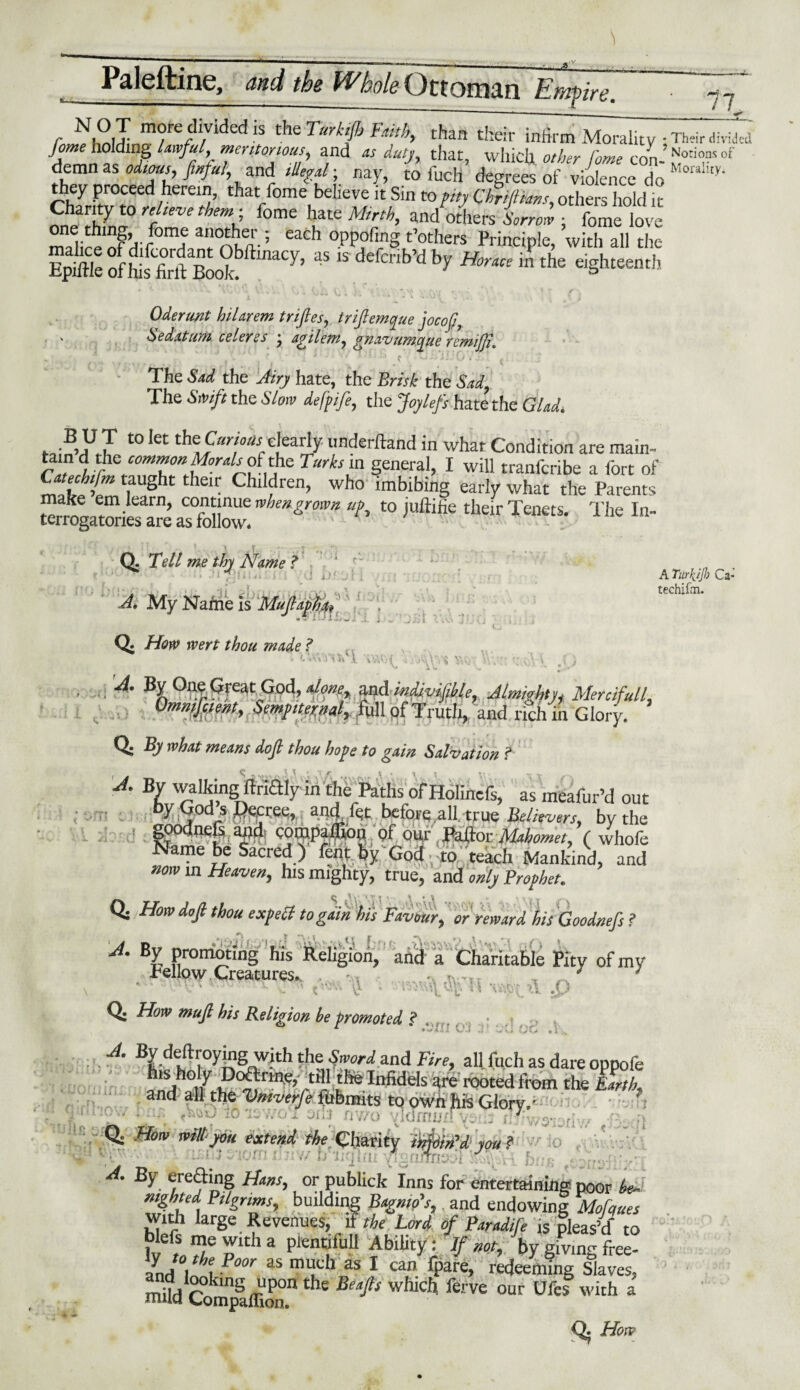 Paleſtine, and the Whole Ottoman Empire. 77
NOT more divided is the Turkiſh Faith, than their infirm Morality;
ſome holding lawful, meritorious, and as duty, that, which other ſome con-
demn as odious, ſinful, and illegal; nay, to ſuch degrees of violence do
they proceed herein, that ſome believe it Sin to pity Chriſtians, others hold it
Charity to relieve them; ſome hate Mirth, and others Sorrow; ſome love
one thing, ſome another; each oppoſing t'others Principle, with all the
malice of diſcordant Obſtinacy, as is deſcrib'd by Horace in the eighteenth
Epiſtle of his firſt Book.
Their divided
Notions of
Morality.
Oderunt hilarem triſtes, triſtemque jocoſi,
Sedatum celeres; agilem, gnavumque remiſſi.
The Sad the Airy hate, the Brisk the Sad,
The Swift the Slow deſpiſe, the Joyleſs hate the Glad.
BUT to let the Curious clearly underſtand in what Condition are main-
tain'd the common Morals of the Turks in general, I will tranſcribe a ſort of
Catechiſm taught their Children, who imbibing early what the Parents
make 'em learn, continue when grown up, to juſtifie their Tenets. The In-
terrogatories are as follow.
A Turkiſh Ca-
techiſm.
Q. Tell me thy Name?
A. My Name is Muſtapha.
Q. How wert thou made?
A. By One Great God, alone, and indiviſible, Almighty, Mercifull,
Omniſcient, Sempiternal, full of Truth, and rich in Glory.
Q. By what means doſt thou hope to gain Salvation?
A. By walking ſtrictly in the Paths of Holineſs, as meaſur'd out
by God's Decree, and ſet before all true Believers, by the
goodneſs and compaſſion of our Paſtor Mahomet, (whoſe
Name be Sacred) ſent by God to teach Mankind, and
now in Heaven, his mighty, true, and only Prophet.
Q. How doſt thou expect to gain his Favour, or reward his Goodneſs?
A. By promoting his Religion, and a Charitable Pity of my
Fellow Creatures.
Q. How muſt his Religion be promoted?
A. By deſtroying with the Sword and Fire, all ſuch as dare oppoſe
his holy Doctrine, till the Infidels are rooted from the Earth,
and all the Univerſe ſubmits to own his Glory.
Q. How will you extend the Charity injoin'd you?
A. By erecting Hans, or publick Inns for entertaining poor be-
nighted Pilgrims, building Bagnio's, and endowing Moſques
with large Revenues, if the Lord of Paradiſe is pleas'd to
bleſs me with a plentifull Ability: If not, by giving free-
ly to the Poor as much as I can ſpare, redeeming Slaves,
and looking upon the Beaſts which ſerve our Uſes with a
mild Compaſſion.
Q. How